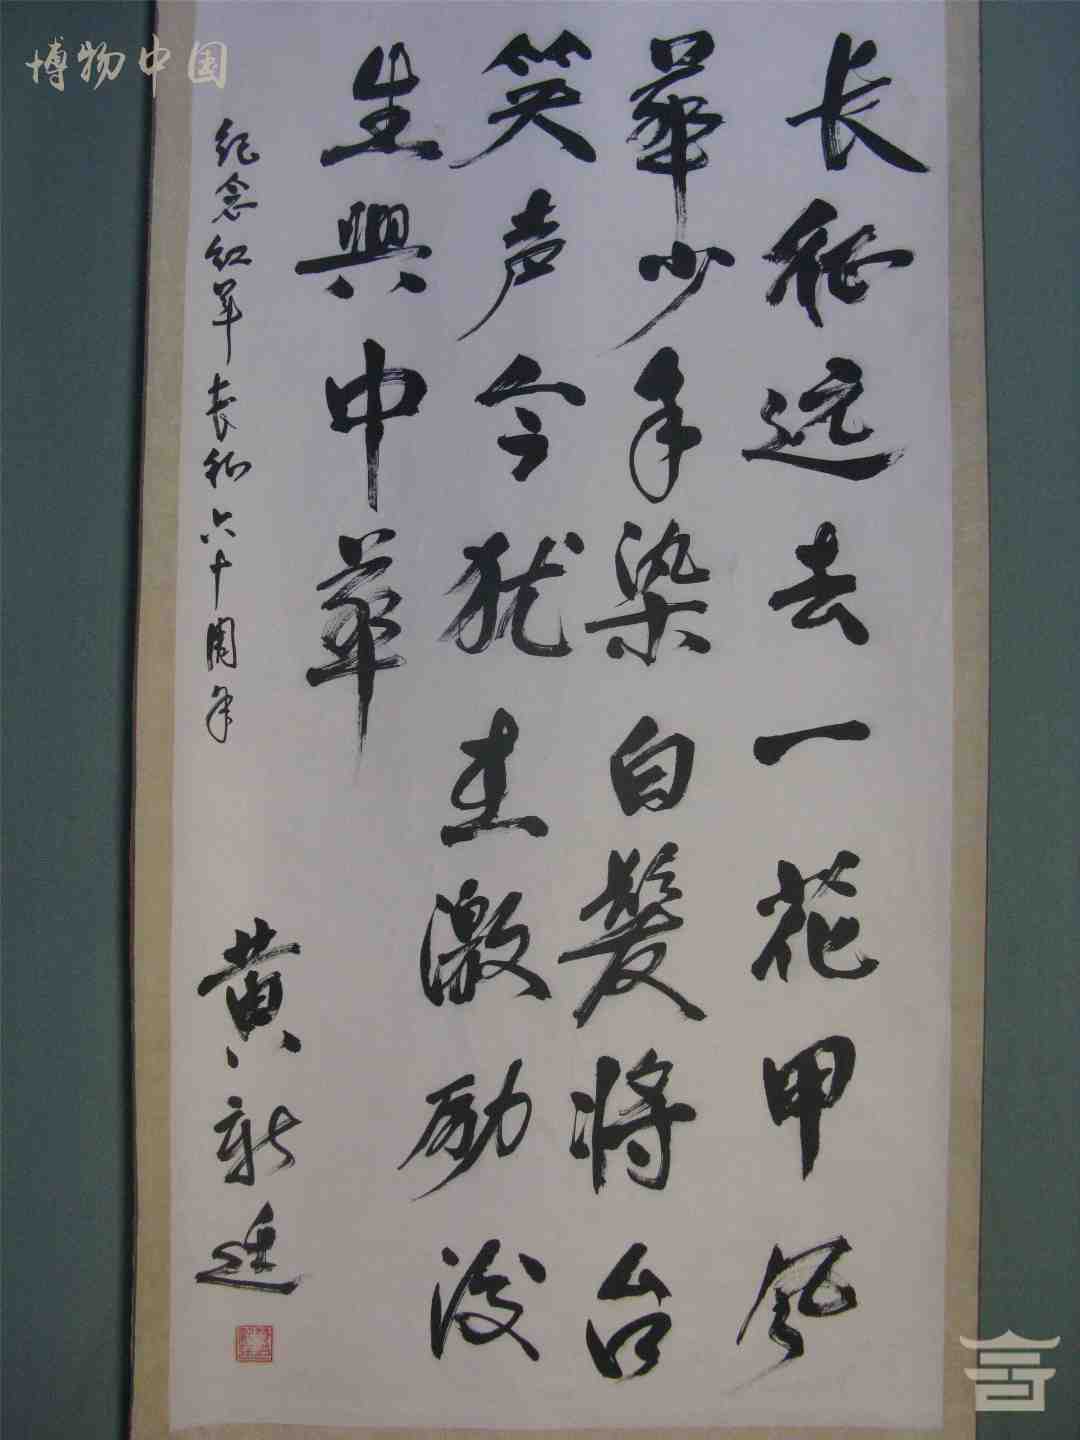 博物中国
长征远去一花甲风
華少年染白髮将台
笑声今犹在激励後
生興中華
纪念红军长征六十周年
黄新廷